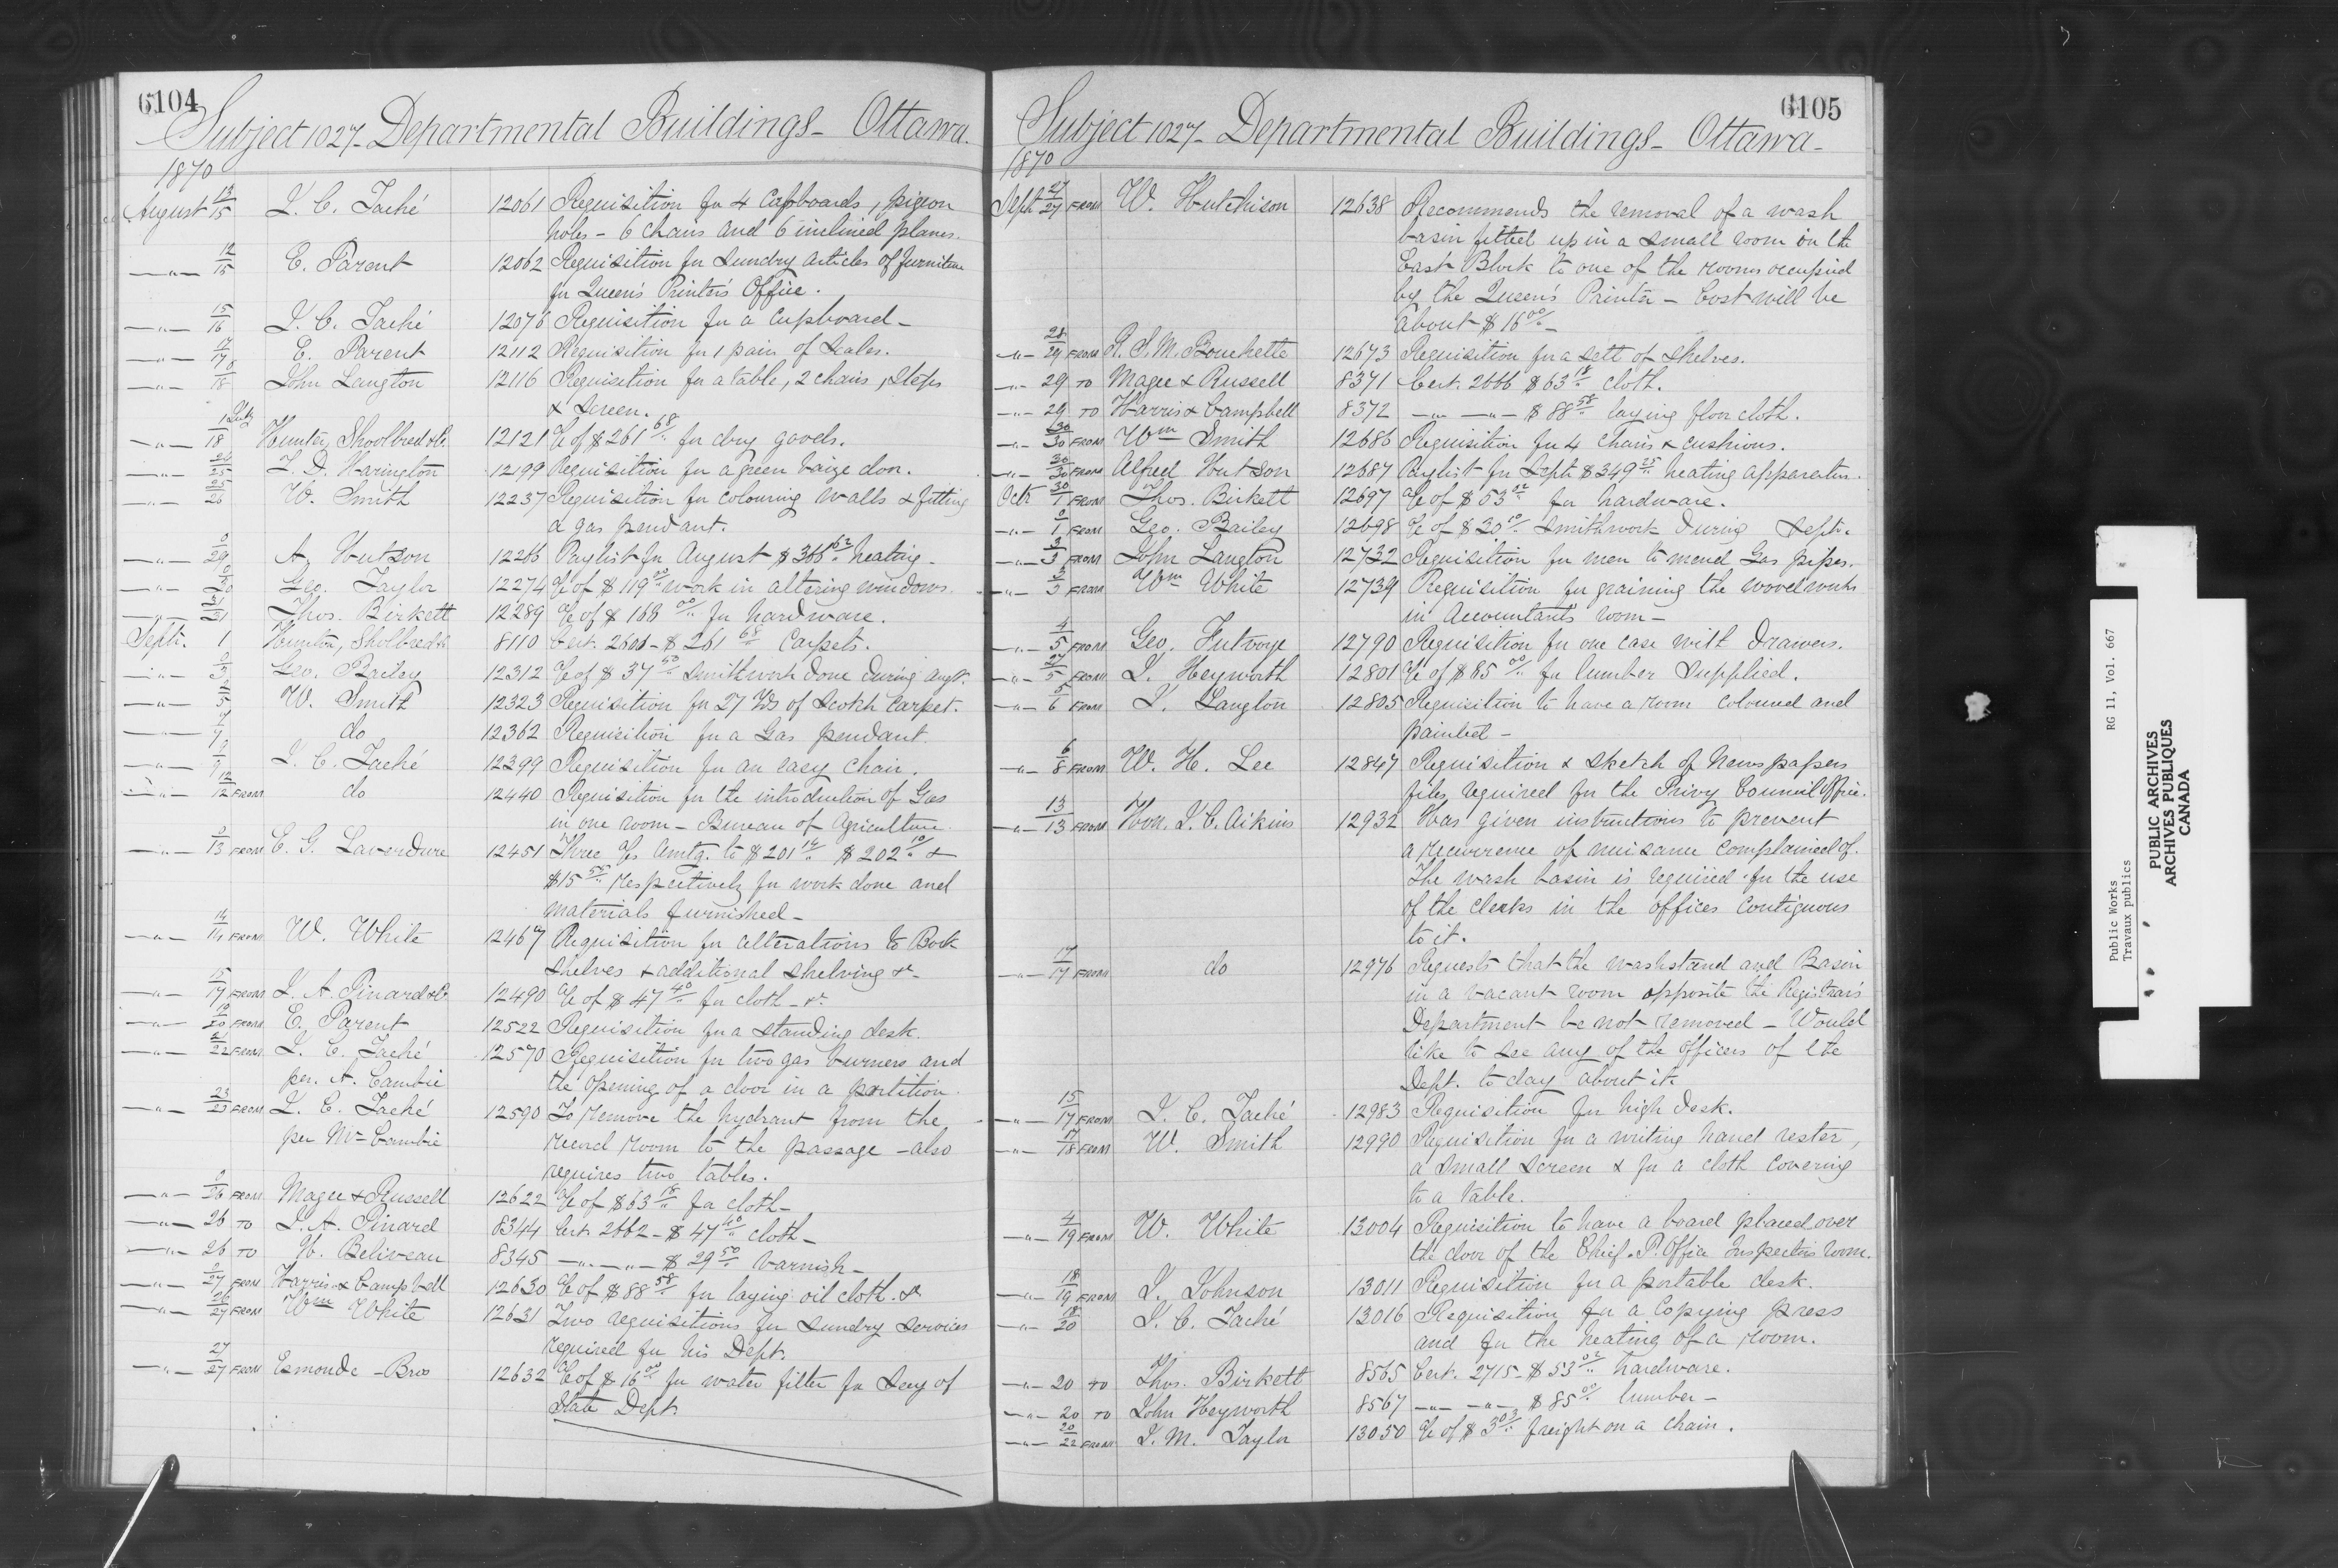 6104
Subject 1027_ Departmental Buildings_ Ottawa.
1870
August 13/15 J. C. Taché 12061 Requisition for 4 Cupboards, pigeon
holes – 6 chairs and 6 inclined planes.
—"— 12/15 E. Parent 12062 Requisition for Sundry Articles of furniture
for Queen's Printer's Office.
—"— 15/16 J. C. Taché 12076 Requisition for a Cupboard_
—"— 17/17 E. Parent 12112 Requisition for 1 pair of Scales.
—"— 18 John Langton 12116 Requisition for a table, 2 chairs, Steps
& Screen.
—"— 1 July/18 Hunter, Shoolbred & Co. 12121 a/c of $261 68/.. for dry goods.
—"— 24/25 T. D. Harington 12199 Requisition for a green baize door.
—"— 25/26 W. Smith 12237 Requisition for colouring walls & fitting
a gas pendant.
—"— 0/29 A. Hutson 12266 Paylist for August $366 62/.. heating_
—"— Geo. Taylor 12274 a/c of $119 00/.. work in altering windows.
—"— 31/31 Thos. Birkett 12289 a/c of $168 00/.. for hardware.
Sept. 1 Hunton, Sholbred & 8110 Cert. 2601_ $261 68/.. Carpets.
—"— 0/3 Geo. Bailey 12312 a/c of $37 50/.. Smithwork done during Augt.
—"— 5 W. Smith 12323 Requisition for 27 Yds of Scotch Carpet.
—"— 7 do 12362 Requisition for a Gas pendant.
—"— 9 J. C. Taché 12399 Requisition for an easy Chair.
—"— 12/12 FROM do 12440 Requisition for the introduction of Gas
in one room – Bureau of Agriculture.
—"— 0/13 FROM E. G. Laverdure 12451 Three a/cs Amtg. to $201 14/.. $202 10/.. &
$15 55/.. respectively for work done and
materials furnished_
—"— 14/14 FROM W. White 12467 Requisition for alterations to Book
shelves & additional shelving &c_
—"— 15/17 FROM J. A. Pinard & Co 12490 a/c of $47 40/.. for cloth_ &c
—"— 19/20 FROM E. Parent 12522 Requisition for a standing desk.
—"— 22 FROM J. C. Taché 12570 Requisition for two gas burners and
per. A. Cambie the opening of a door in a partition.
—"— 23/23 FROM J. C. Taché 12590 To remove the hydrant from the
per Mr Cambie record room to the passage – also
requires two tables.
—"— 0/26 FROM Magee & Russell 12622 a/c of $63 18/.. for cloth_
—"— 26 TO J. A. Pinard 8344 Cert. 2662_ $47 40/.. cloth_
—"— 26 TO H. Beliveau 8345 —"—"— $29 50/.. Varnish_
—"— 0/27 FROM Harris & Campbell 12630 a/c of $88 58/.. for laying oil cloth. &c
—"— 26/27 FROM Wm White 12631 Two requisitions for Sundry Services
required for his Dept.
—"— 27/27 FROM Esmonde – Bros 12632 a/c of $16 00/.. for water filter for Secy of
State Dept.
6105
Subject 1027_ Departmental Buildings_ Ottawa_
1870
Sept 27/27 FROM W. Hutchison 12638 Recommends the removal of a wash
basin fitted up in a small room in the
East Block to one of the rooms occupied
by the Queen's Printer – Cost will be
About $16 00/.._
—"— 28/29 FROM R. S. M. Bouchette 12673 Requisition for a sett of shelves.
—"— 29 TO Magee & Russell 8371 Cert. 2666 $63 18/.. cloth.
—"— 29 TO Harris & Campbell 8372 —"— —"— $88 58/.. laying floor cloth.
—"— 30/30 FROM Wm Smith 12686 Requisition for 4 chairs & cushions.
—"— 30/30 FROM Alfred Hutson 12687 Paylist for Sept. $349 25/.. heating apparatus.
Octr 30/1 FROM Thos. Birkett 12697 a/c of $53 02/.. for hardware.
—"— 0/1 FROM Geo. Bailey 12698 a/c of $30 10/.. Smithwork during Sept.
—"— 3/3 FROM John Langton 12732 Requisition for men to mend Gas pipes.
—"— 3/3 FROM Wm White 12739 Requisition for graining the woodwork
in Accountants room_
—"— 4/5 FROM Geo. Futvoye 12790 Requisition for one case with Drawers.
—"— 27/5 FROM J. Heyworth 12801 a/c of $85 00/.. for lumber Supplied.
—"— 5/6 FROM J. Langton 12805 Requisition to have a room Coloured and
painted_
—"— 6/8 FROM W. H. Lee 12847 Requisition & sketch of Newspapers
files required for the Privy Council Office.
—"— 13/13 FROM Hon. J. C. Aikins 12932 Has given instructions to prevent
a recurrence of nuisance complained of.
The wash basin is required for the use
of the clerks in the offices Contiguous
to it.
—"— 17/17 FROM do 12976 Requests that the washstand and Basin
in a vacant room opposite the Registrar's
Department be not removed – Would
like to see any of the Officers of the
Dept. to day about it.
—"— 15/17 FROM J. C. Taché 12983 Requisition for high desk.
—"— 17/18 FROM W. Smith 12990 Requisition for a writing hand rester,
a small screen & for a cloth covering
to a table.
—"— 4/19 FROM W. White 13004 Requisition to have a board placed over
the door of the Chief. P. Office Inspector's room.
—"— 18/19 FROM J. Johnson 13011 Requisition for a portable desk.
—"— 18/20 J. C. Taché 13016 Requisition for a Copying press
and for the heating of a room.
—"— 20 to Thos. Birkett 8565 Cert. 2715_ $53 02/.. hardware.
—"— 20 TO John Heyworth 8567 —"— —"— $85 00/.. lumber_
—"— 20/22 FROM J. M. Taylor 13050 a/c of $3 03/.. freight on a chain.
Public Works RG 11, Vol. 667
Travaux publics
PUBLIC ARCHIVES
ARCHIVES PUBLIQUES
CANADA